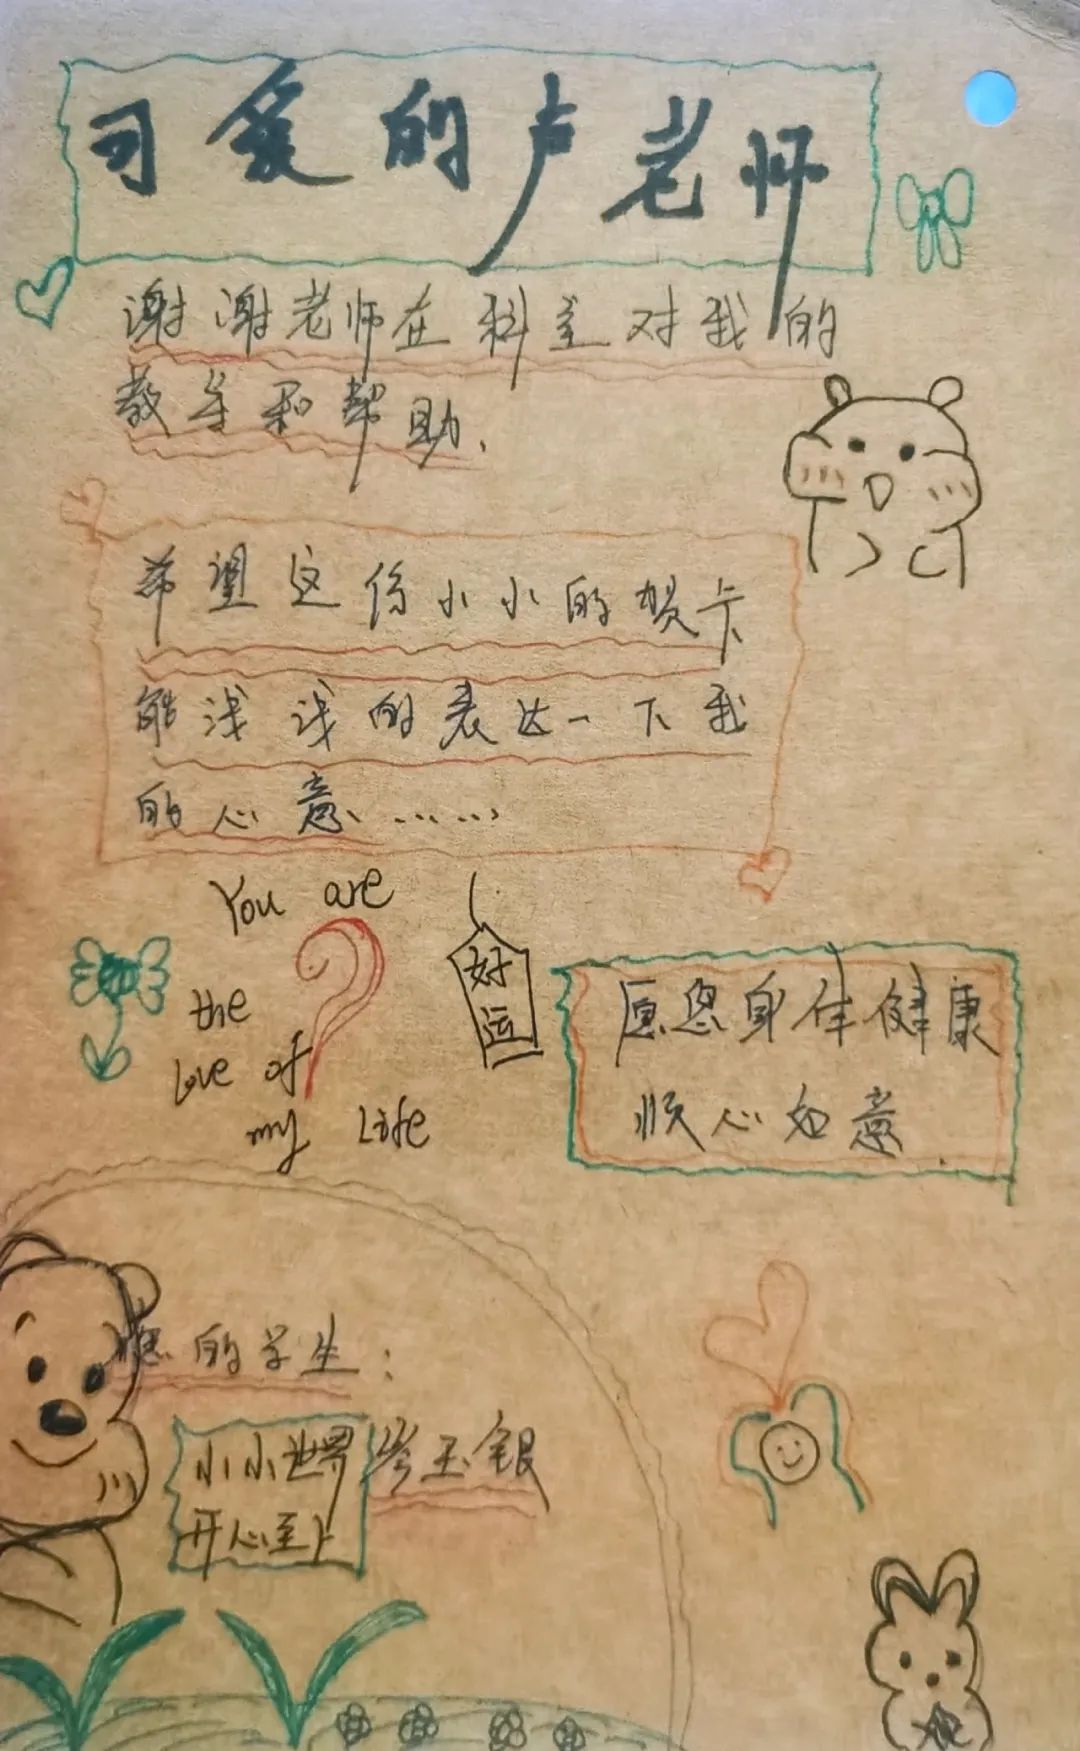 可爱的卢老师
谢谢老师在科室对我的
教导和帮助.
希望这份小小的贺卡
能浅浅的表达一下我
的心意......
You are
the
Love of
my Life
好
运
愿您身体健康
顺心如意.
您的学生:
小小世界
开心至上
岑玉银